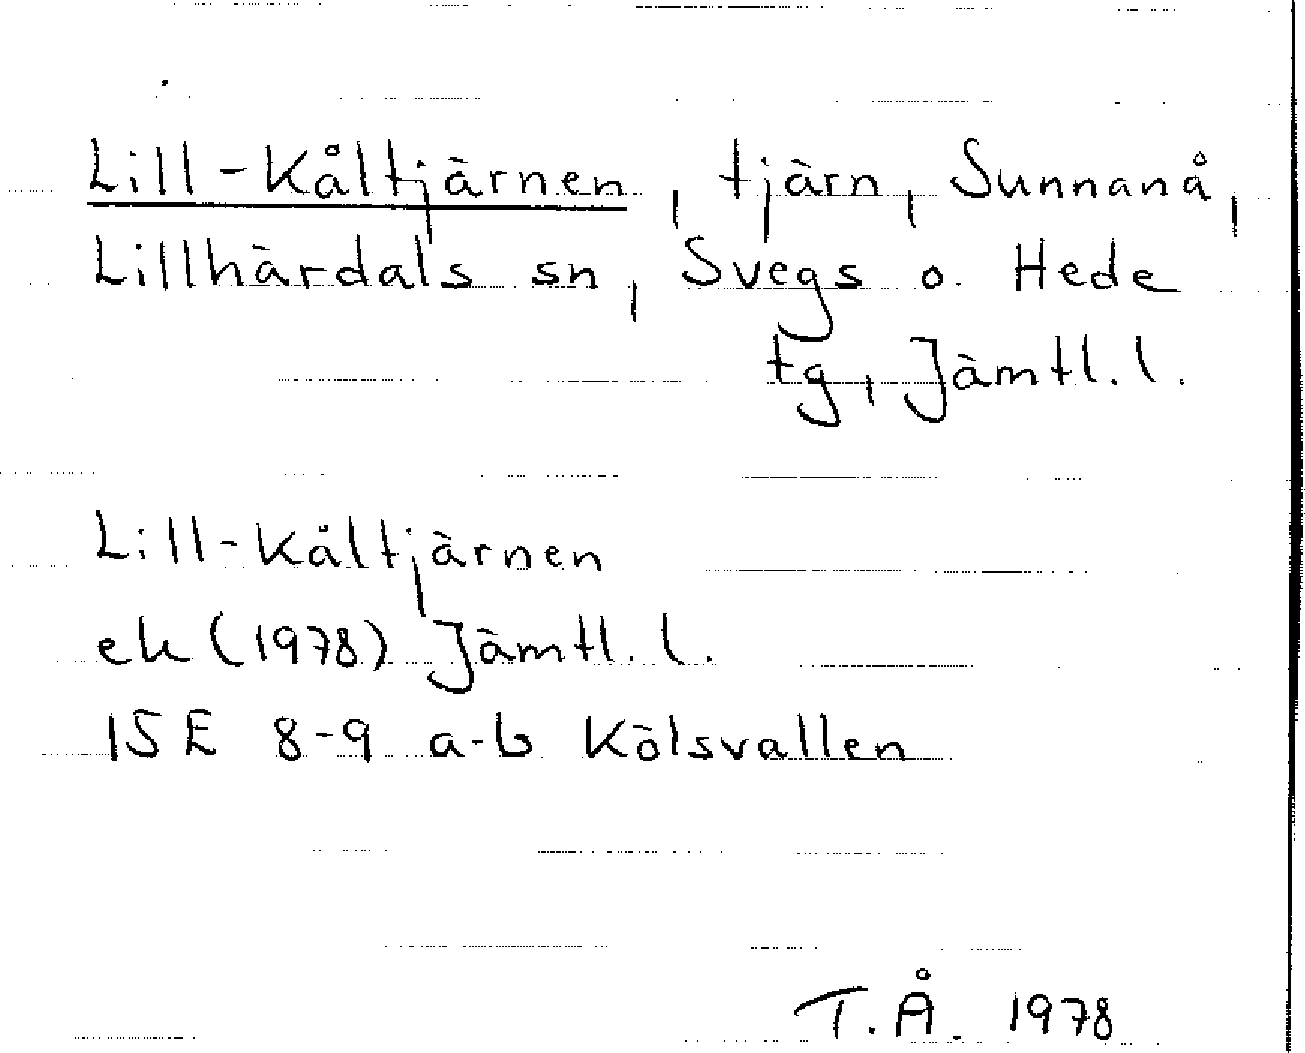 Lill-Kåltjärnen, tjärn, Sunnanå,
Lillhärdals sn, Svegs o. Hede
tg, Jämtl.l.
Lill-Kåltjärnen
ek (1978) Jämtl.l.
15E 8-9 a-b Kölsvallen
T.Å. 1978